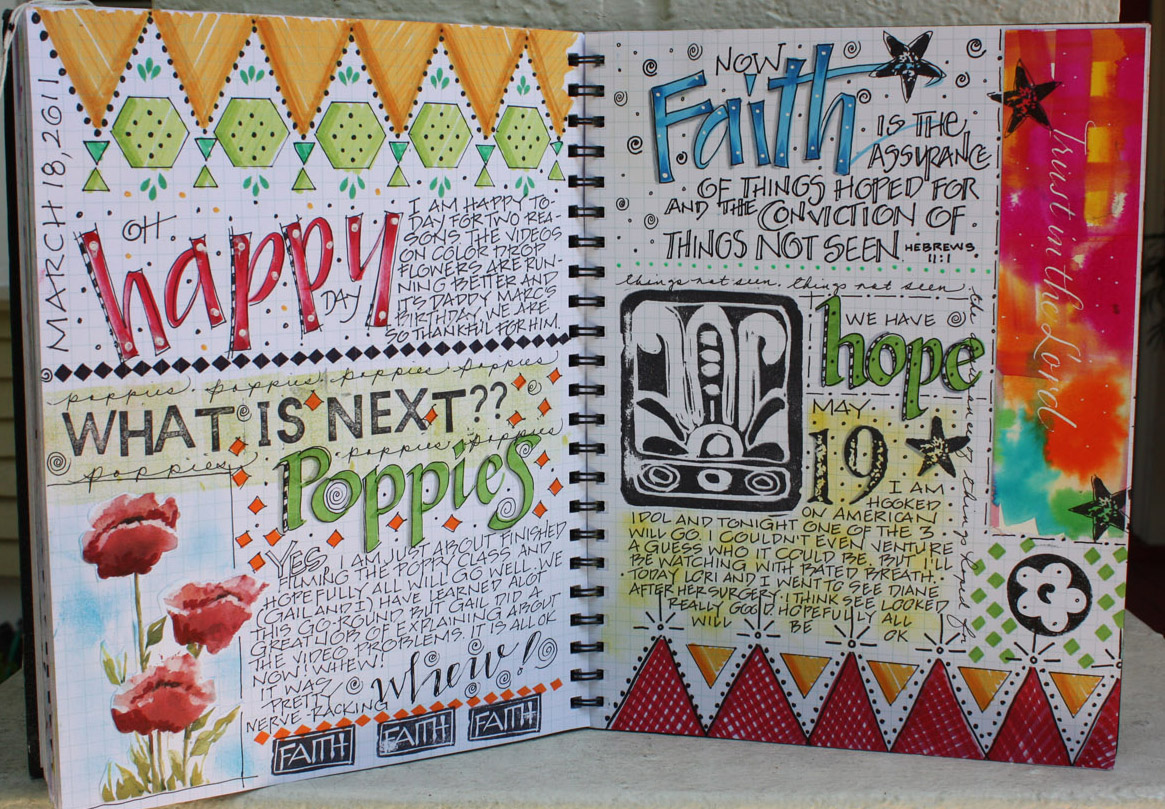 MARCH 18, 2011
OH
happy
DAY
I AM HAPPY TO-
DAY FOR TWO REA-
SONS. THE VIDEOS
ON COLOR DROP
FLOWERS ARE RUN-
NING BETTER AND
ITS DADDY MARC'S
BIRTHDAY. WE ARE
SO THANKFUL FOR HIM.
poppies. poppies. poppies poppies
WHAT IS NEXT??
poppies poppies
poppies
Poppies
YES, I AM JUST ABOUT FINISHED
FILMING THE POPPY CLASS AND
HOPEFULLY ALL WILL GO WELL. WE
(GAIL AND I) HAVE LEARNED ALOT
THIS GO-ROUND BUT GAIL DID A
GREAT JOB OF EXPLAINING ABOUT
THE VIDEO PROBLEMS. IT IS ALL OK
NOW! WHEW!
IT WAS
PRETTY
NERVE-RACKING
whew!
FAITH FAITH FAITH
NOW
Faith
IS THE
ASSURANCE
OF THINGS HOPED FOR
AND THE CONVICTION OF
THINGS NOT SEEN. HEBREWS
11:1
things not seen. things not seen
WE HAVE
hope
MAY
19
I AM
HOOKED
ON AMERICAN
IDOL AND TONIGHT ONE OF THE 3
WILL GO. I COULDN'T EVEN VENTURE
A GUESS WHO IT COULD BE. BUT I'LL
BE WATCHING WITH BATED BREATH.
TODAY LORI AND I WENT TO SEE DIANE
AFTER HER SURGERY. I THINK SEE LOOKED
REALLY GOOD. HOPEFULLY ALL
WILL BE OK
Trust in the Lord